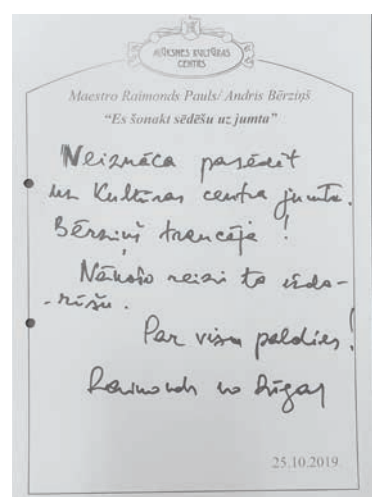 ALŪKSNES KULTŪRAS
CENTRS
Maestro Raimonds Pauls/ Andris Bērziņš
“Es šonakt sēdēšu uz jumta”
Neiznāca pasēdēt
uz Kultūras centra jumta.
Bērziņš traucēja!
Nākošo reizi to izda-
-rīšu.
Par visu paldies!
Raimonds no Rīgas
25.10.2019.